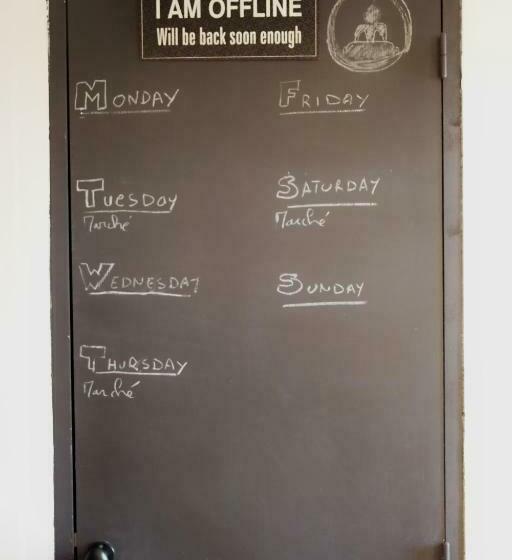 I AM OFFLINE
Will be back soon enough
MONDAY
TUESDAY
Marché
WEDNESDAY
THURSDAY
Marché
FRIDAY
SATURDAY
Marché
SUNDAY